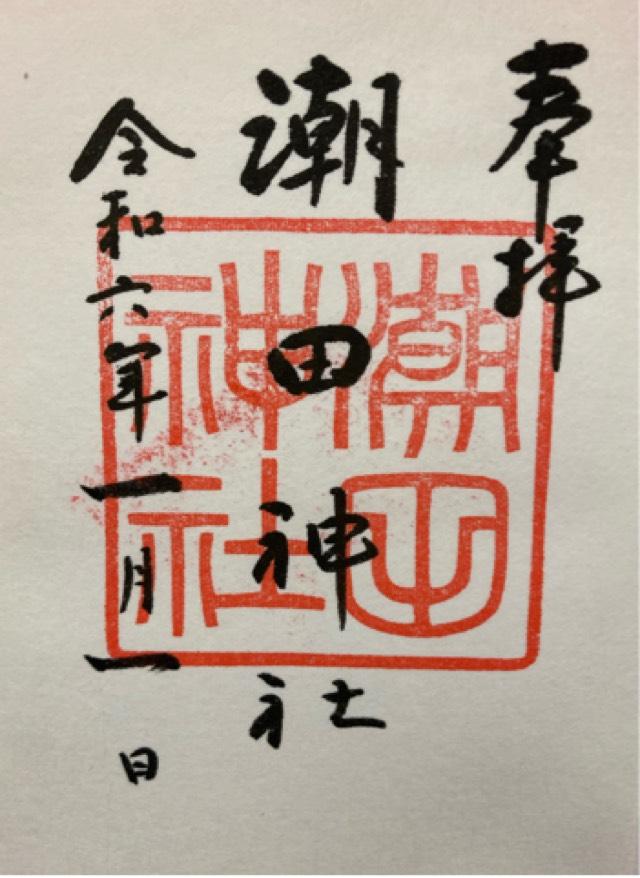 奉拝
潮田神社
令和六年一月一日
潮田
神社